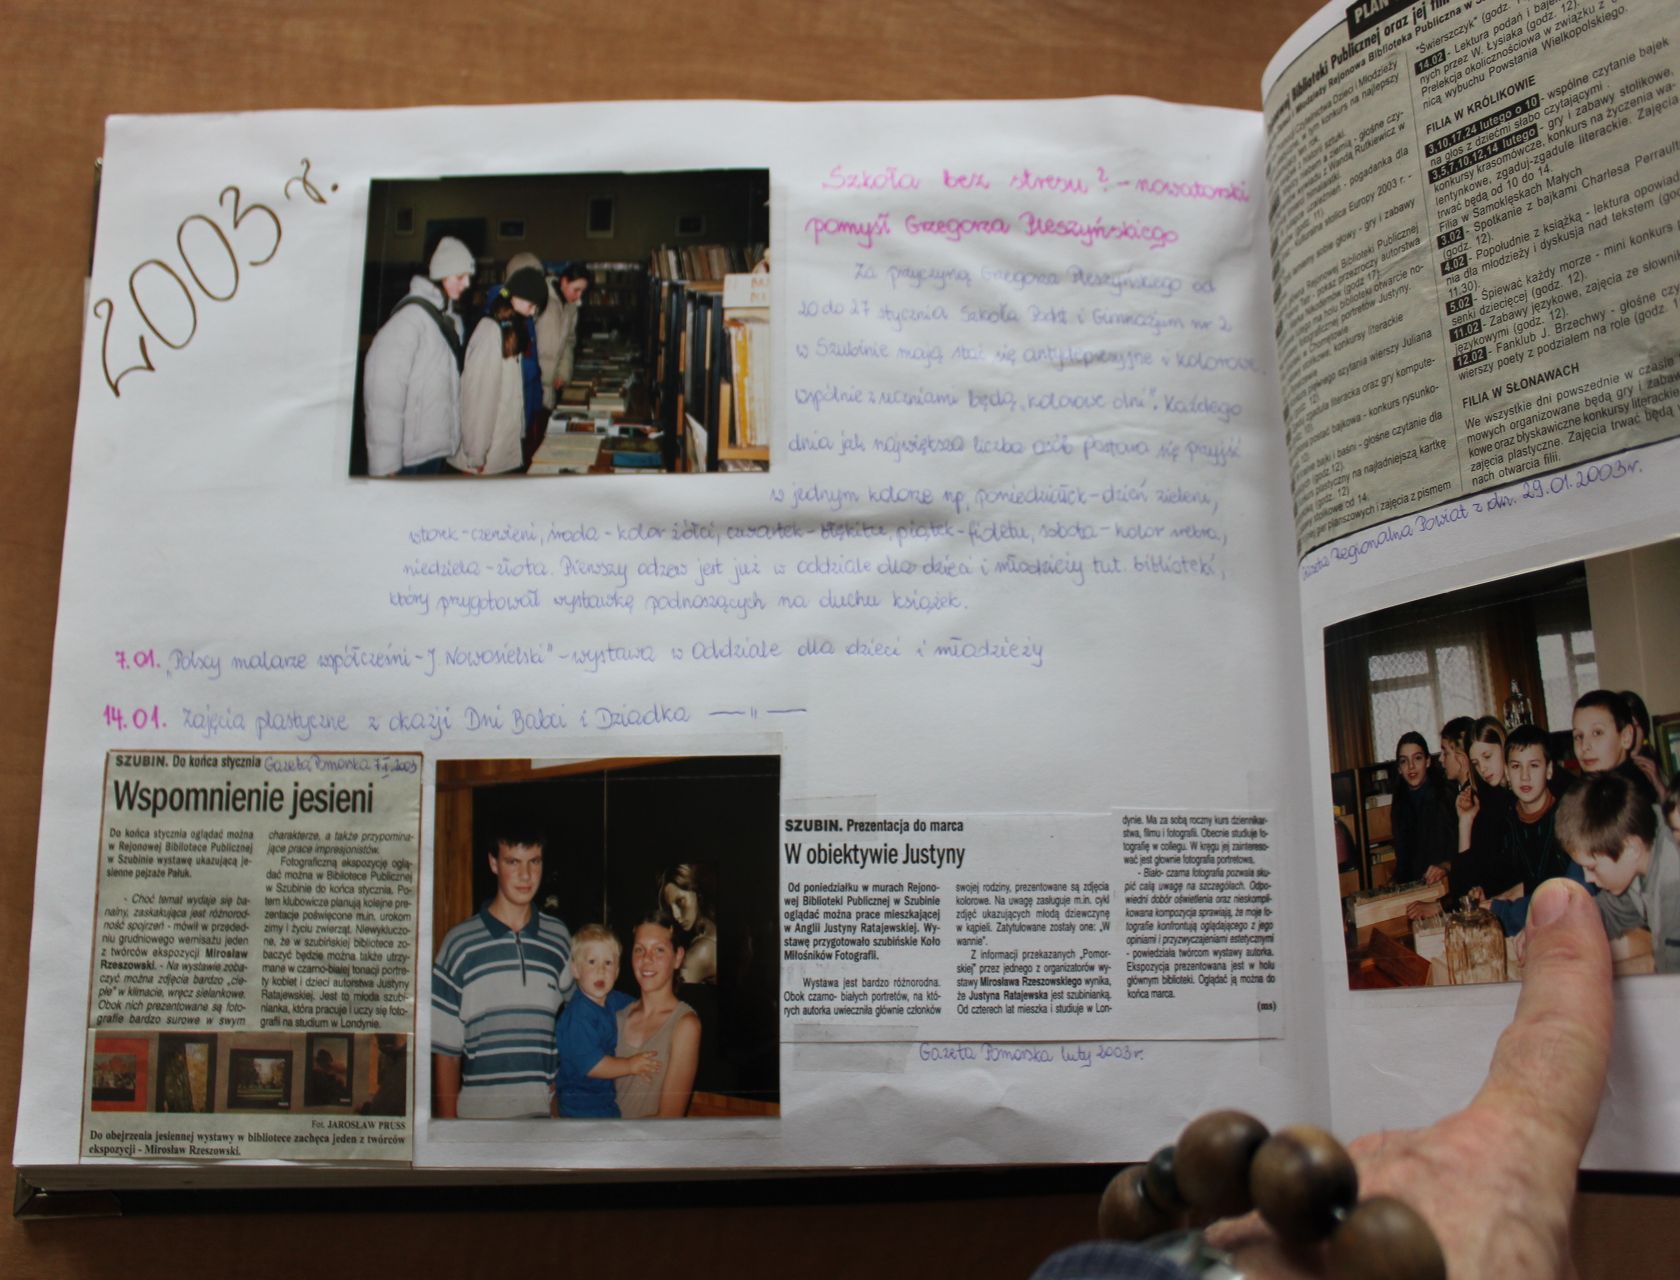 2003 r.
Szkoła bez stresu? - nowatorski
pomysł Grzegorza Pleszyńskiego
Za przyczyną Grzegorza Pleszyńskiego od
20 do 27 stycznia Szkoła Podst i Gimnazjum nr 2
w Szubinie mają stać się antydepresyjne i kolorowe
wspólnie z uczniami będą „kolorowe dni". Każdego
dnia jak największa liczba osób postara się przyjść
w jednym kolorze np. poniedziałek - dzień zieleni,
wtorek - czerwieni, środa - kolor żółci, czwartek - błękitu, piątek - fioletu, sobota - kolor srebra,
niedziela - złota. Pierwszy odzew jest już w oddziale dla dzieci i młodzieży tut. biblioteki,
który przygotował wystawkę podnoszących na duchu książek.
7.01. „Polscy malarze współcześni - J. Nowosielski" - wystawa w Oddziale dla dzieci i młodzieży
14.01. Zajęcia plastyczne z okazji Dni Babci i Dziadka — " —
SZUBIN. Do końca stycznia Gazeta Pomorska 7.I.2003
Wspomnienie jesieni
Do końca stycznia oglądać można
w Rejonowej Bibliotece Publicznej
w Szubinie wystawę ukazującą je-
sienne pejzaże Pałuk.
- Choć temat wydaje się ba-
nalny, zaskakująca jest różnorod-
ność spojrzeń - mówił w przeded-
niu grudniowego wernisażu jeden
z twórców ekspozycji Mirosław
Rzeszowski. - Na wystawie zoba-
czyć można zdjęcia bardzo „cie-
płe" w klimacie, wręcz sielankowe.
Obok nich prezentowane są foto-
grafie bardzo surowe w swym
charakterze, a także przypomina-
jące prace impresjonistów.
Fotograficzną ekspozycję oglą-
dać można w Bibliotece Publicznej
w Szubinie do końca stycznia. Po-
tem klubowicze planują kolejne pre-
zentacje poświęcone m.in. urokom
zimy i życiu zwierząt. Niewykluczo-
ne, że w szubińskiej bibliotece zo-
baczyć będzie można także utrzy-
mane w czarno-białej tonacji portre-
ty kobiet i dzieci autorstwa Justyny
Ratajewskiej. Jest to młoda szubi-
nianka, która pracuje i uczy się foto-
grafii na studium w Londynie.
Fot. JAROSŁAW PRUSS
Do obejrzenia jesiennej wystawy w bibliotece zachęca jeden z twórców
ekspozycji - Mirosław Rzeszowski.
SZUBIN. Prezentacja do marca
W obiektywie Justyny
Od poniedziałku w murach Rejono-
wej Biblioteki Publicznej w Szubinie
oglądać można prace mieszkającej
w Anglii Justyny Ratajewskiej. Wy-
stawę przygotowało szubińskie Koło
Miłośników Fotografii.
Wystawa jest bardzo różnorodna.
Obok czarno- białych portretów, na któ-
rych autorka uwieczniła głównie członków
swojej rodziny, prezentowane są zdjęcia
kolorowe. Na uwagę zasługuje m.in. cykl
zdjęć ukazujących młodą dziewczynę
w kąpieli. Zatytułowane zostały one: „W
wannie".
Z informacji przekazanych „Pomor-
skiej" przez jednego z organizatorów wy-
stawy Mirosława Rzeszowskiego wynika,
że Justyna Ratajewska jest szubinianką.
Od czterech lat mieszka i studiuje w Lon-
dynie. Ma za sobą roczny kurs dziennikar-
stwa, filmu i fotografii. Obecnie studiuje fo-
tografię w collegu. W kręgu jej zaintereso-
wać jest głownie fotografia portretowa.
- Biało- czarna fotografia pozwala sku-
pić całą uwagę na szczegółach. Odpo-
wiedni dobór oświetlenia oraz nieskompli-
kowana kompozycja sprawiają, że moje fo-
tografie konfrontują oglądającego z jego
opiniami i przyzwyczajeniami estetycznymi
- powiedziała twórcom wystawy autorka.
Ekspozycja prezentowana jest w holu
głównym biblioteki. Oglądać ją można do
końca marca.
(ms)
Gazeta Pomorska luty 2003 r.
"Świerszczyk" (godz.
14.02 - Lektura podań i bajek
nych przez W. Łysiaka (godz. 12).
Prelekcja okolicznościowa w związku z
nicą wybuchu Powstania Wielkopolskiego.
FILIA W KRÓLIKOWIE
3,10,17,24 lutego o 10 - wspólne czytanie bajek
na głos z dziećmi słabo czytającymi
3,5,7,10,12,14 lutego - gry i zabawy stolikowe,
konkursy krasomówcze, konkurs na życzenia wa-
lentynkowe, zgaduj-zgadule literackie. Zajęcia
trwać będą od 10 do 14.
Filia w Samoklęskach Małych
3.02 - Spotkanie z bajkami Charlesa Perraulta
(godz. 12).
4.02 - Popołudnie z książką - lektura opowiad
nia dla młodzieży i dyskusja nad tekstem (god
11.30).
5.02 - Śpiewać każdy morze - mini konkurs
senki dziecięcej (godz. 12).
11.02 - Zabawy językowe, zajęcia ze słownik
językowymi (godz. 12).
12.02 - Fanklub J. Brzechwy - głośne czy
wierszy poety z podziałem na role (godz.
FILIA W SŁONAWACH
We wszystkie dni powszednie w czasie
mowych organizowane będą gry i zabaw
kowe oraz błyskawiczne konkursy literackie
zajęcia plastyczne. Zajęcia trwać będą
nach otwarcia filii.
Gazeta Regionalna Powiat z dn. 29.01.2003 r.